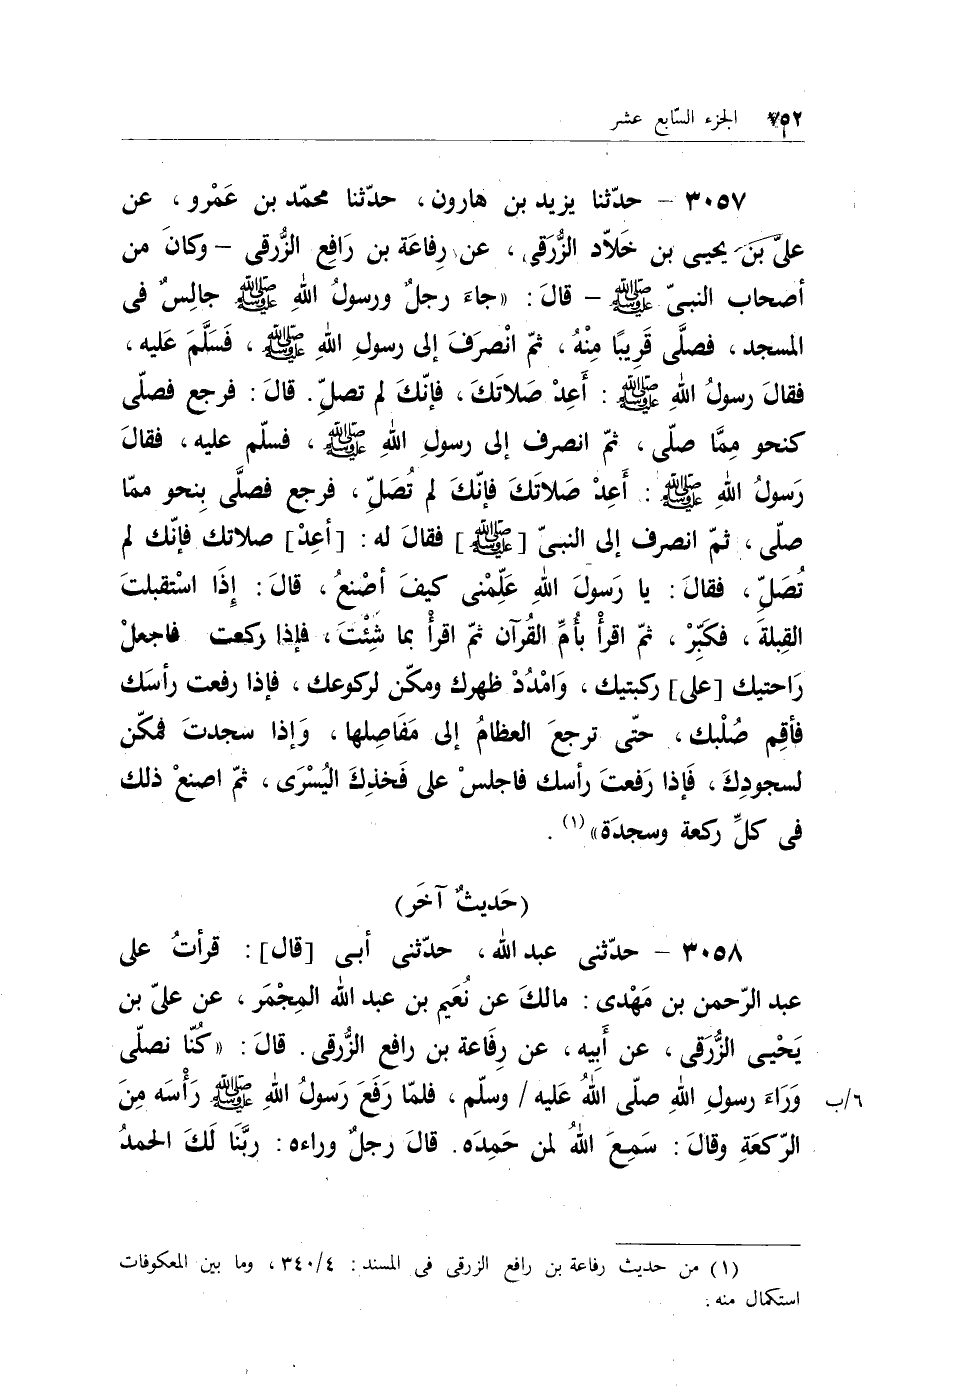 ٧٥٢ الجزء السّابع عشر
٣٠٥٧ – حدّثنا يزيد بن هارون، حدّثنا محمّد بن عَمْرو، عن
علىّ بْن يحيى بن خَلّاد الزُّرَقى، عن رِفاعَة بن رَافِع الزُّرقى – وكانَ من
أصحاب النبىّ ﷺ – قال: «جاءَ رجلٌ ورسولُ اللهِ ﷺ جالِسٌ فى
المسجد، فصلَّى قَرِيبًا مِنْهُ، ثمّ انْصرَفَ إلى رسولِ اللهِ ﷺ، فَسَلَّمَ عَليه،
فقالَ رسولُ اللهِ ﷺ: أَعِدْ صَلاتَكَ، فإنّكَ لم تصلّ. قالَ: فرجع فصلّى
كنحو مِمَّا صلّى، ثمّ انصرف إلى رسولِ اللهِ ﷺ، فسلّم عليه، فقالَ
رَسولُ اللهِ ﷺ: أَعِدْ صَلاتَكَ فإنّكَ لم تُصَلِّ، فرجع فصلَّى بِنحو ممّا
صلّى، ثمّ انصرف إلى النبىّ [ﷺ] فقالَ له: [أعِدْ] صلاتك فإنّك لم
تُصَلِّ، فقالَ: يا رَسولَ اللهِ عَلِّمْنى كيفَ أصْنعُ، قالَ: إِذَا اسْتقبلتَ
القِبلةَ، فكَبِّرْ، ثمّ اقرأْ بأُمِّ القُرآن ثمّ اقرأْ بما شِئْتَ، فإذا ركعت فاجعلْ
رَاحتيك [على] ركبتيك، وَامْدُدْ ظهرك ومكّن لركوعك، فإذا رفعت رأسَك
فأقِم صُلْبك، حتّى ترجعَ العظامُ إلى مَفَاصِلها، وَإذا سجدتَ فمكّن
لسجودِكَ، فَإذا رَفعتَ رأسك فاجلسْ على فَخذِكَ اليُسْرَى، ثمّ اصنعْ ذلك
فى كلِّ ركعة وسجدَة»(١).
(حَديثٌ آخَر)
٣٠٥٨ – حدّثنى عبد الله، حدّثنى أبى [قال]: قرأتُ على
عبد الرّحمن بن مَهْدى: مالكَ عن نُعَيم بن عبد الله المِجْمَر، عن علىّ بن
يَحْيى الزُّرَقى، عن أَبِيه، عن رِفَاعة بن رافع الزُّرقى. قالَ: «كُنّا نصلّى
وَرَاءَ رسولِ اللهِ صلّى اللهُ عَليه / وسلّم، فلمّا رَفَعَ رَسولُ اللهِ ﷺ رَأْسَه مِنَ ٦/ب
الرّكعَةِ وقالَ: سَمِعَ اللهُ لمن حَمِدَه. قالَ رجلٌ وراءه: ربَّنَا لَكَ الحمدُ
(١) من حديث رفاعة بن رافع الزرقى فى المسند: ٣٤٠/٤، وما بين المعكوفات
استكمال منه.